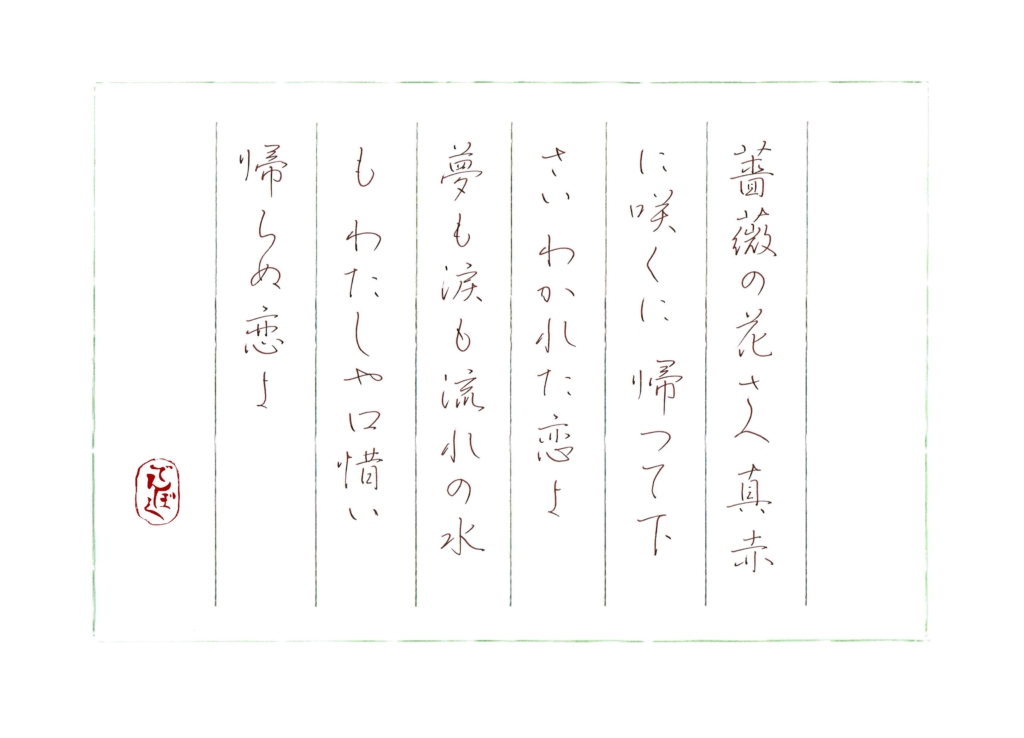 薔薇の花さへ 真赤
に咲くに 帰つて下
さい わかれた恋よ
夢も涙も流れの水
も わたしや口惜い
帰らぬ恋よ